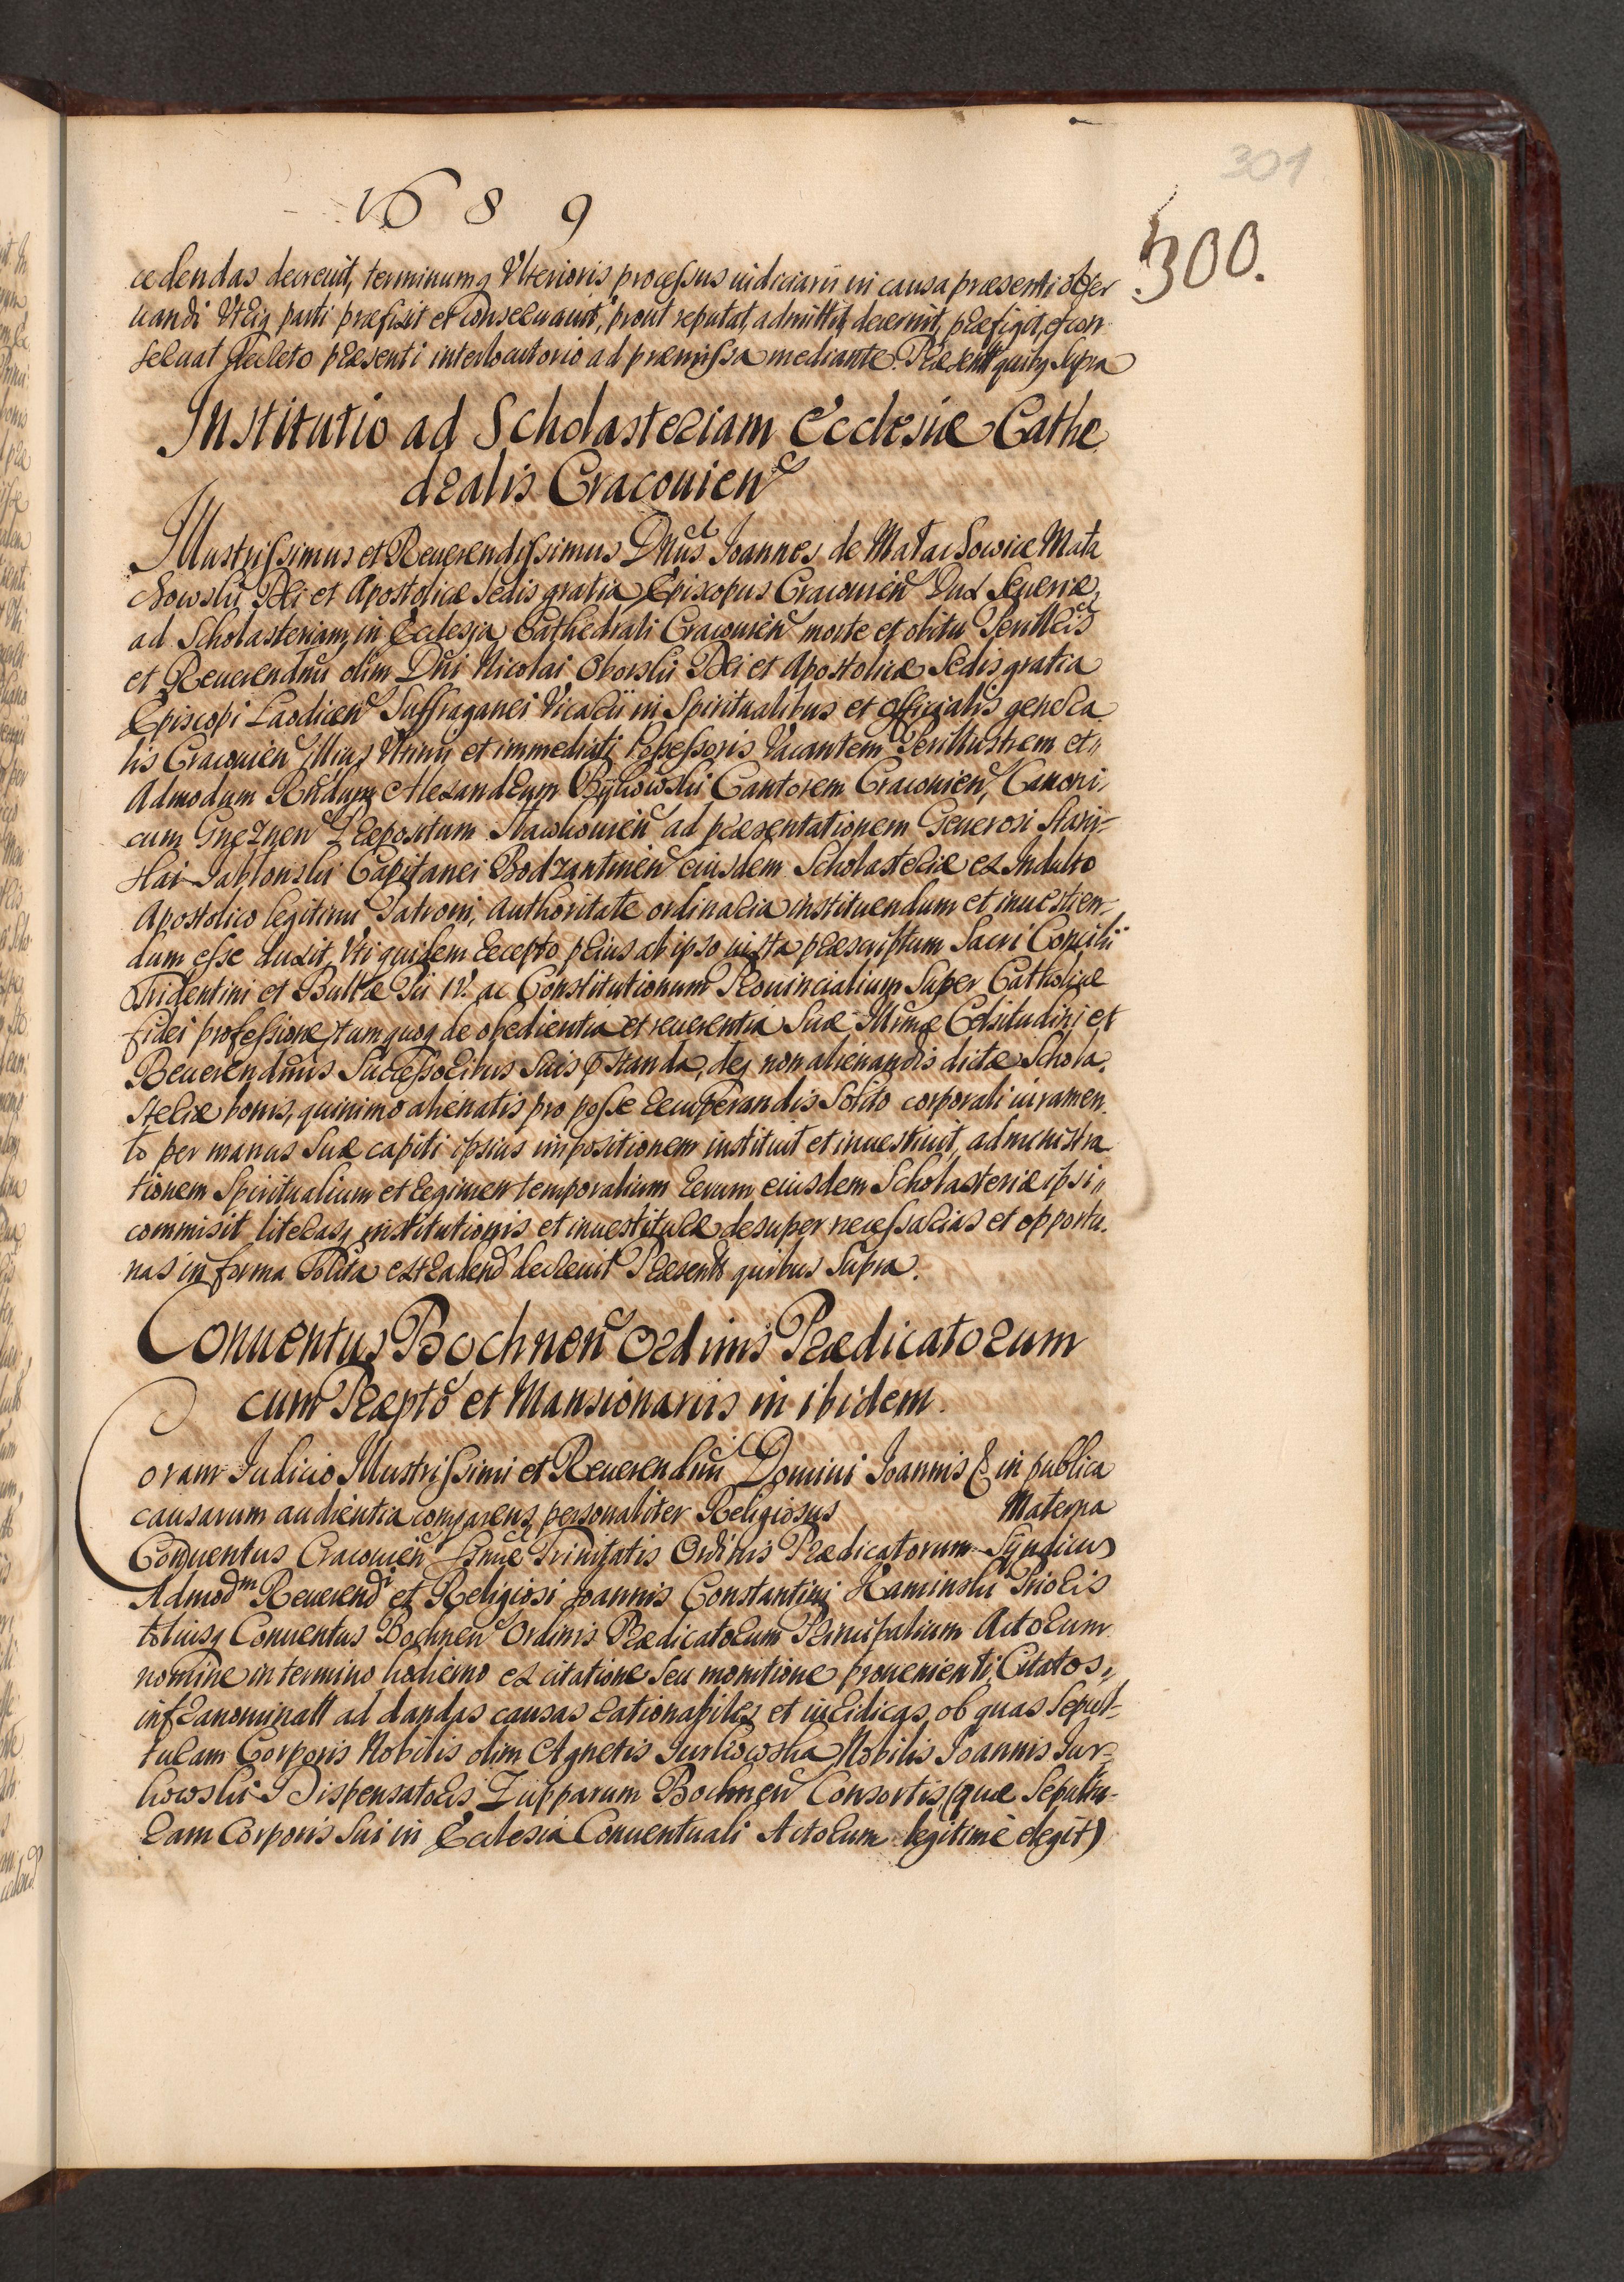 301
1689
300.
cedendas decreuit, terminumq Vlterioris processus iudiciarii in causa præsenti obser
uandi Vtriq parti præfixit et conseruauit, prout reputat, admittit decernit, præfigit, et con
seruat Decreto præsenti interlocutorio ad præmissa mediante. Præsentt quibq Supra
Institutio ad Scholasteriam Ecclesiæ Cathe
dralis Cracouien
Illustrissimus et Reuerendissimus Dnus Ioannes de Małachowice Mała
chowski Dei et Apostolicæ Sedis gratia Episcopus Cracouien Dux Seueriæ,
ad Scholasteriam, in Ecclesia Cathedrali Cracouien morte et obitu Perillris
et Reuerendmi olim Dni Nicolai Oborski Dei et Apostolicæ Sedis gratia
Episcopi Laodicen Suffraganei Vicarii in Spiritualibus et Officialis genera
lis Cracouien illius Vltimi et immediati Possessoris Vacantem Perillustrem et
Admodum Rndum Alexandrum Bykowski Cantorem Cracouien, Canoni,
cum Gneznen Præpositum Sławkouien ad præsentationem Generosi Stani-
slai Jabłonski Capitanei Bodzantinen eiusdem Scholasteriæ ex Indulto
Apostolico legitimi Patroni, Authoritate ordinaria instituendum et inuestien-
dum esse duxit, Vti quidem recepto prius ab ipso iuxta præscriptum Sacri Concilii
Tridentini et Bullæ Pii IV. ac Constitutionum Prouincialium Super Catholicæ
fidei professione, tum quoq de obedientia et reuerentia Suæ Illmæ Celsitudini et
Reuerendmis Successoribus Suis præstanda, deq non alienandis dictæ Schola,
steriæ bonis, quinimo alienatis pro posse recuperandis Solito corporali iuramen
to per manus Suæ capiti ipsius impositionem instituit et inuestiuit, administra
tionem Spiritualium et regimen temporalium rerum eiusdem Scholasteriæ ipsi
commisit literasq institutionis et inuestituræ desuper necessarias et opportu,
nas in forma Solita extradend decreuit Præsentt quibus Supra.
Conuentus Bochnen Ordinis Prædicatorum
cum Præpto et Mansionariis in ibidem.
Coram Iudicio Illustrissimi et Reuerendmi Domini Ioannis & in publica
causarum audientia comparens personaliter Religiosus Materna
Conuentus Cracouien Ssmæ Trinitatis Ordinis Prædicatorum Syndicus
Admodm Reuerendi et Religiosi Ioannis Constantini Kaminski Prioris
totiusq Conuentus Bochnen Ordinis Prædicatorum Principalium Actorum
nomine in termino hodierno ex citatione Seu monitione proueniente Citatos,
infranominatt ad dandas causas rationabiles et iuridicas, ob quas Sepul-
turam Corporis Nobilis olim Agnetis Jurkowska Nobilis Ioannis Jur-
kowski Dispensatoris Zupparum Bochnen Consortis (quæ Sepultu-
ram Corporis Sui in Ecclesia Conuentuali Actorum legitimè elegit)